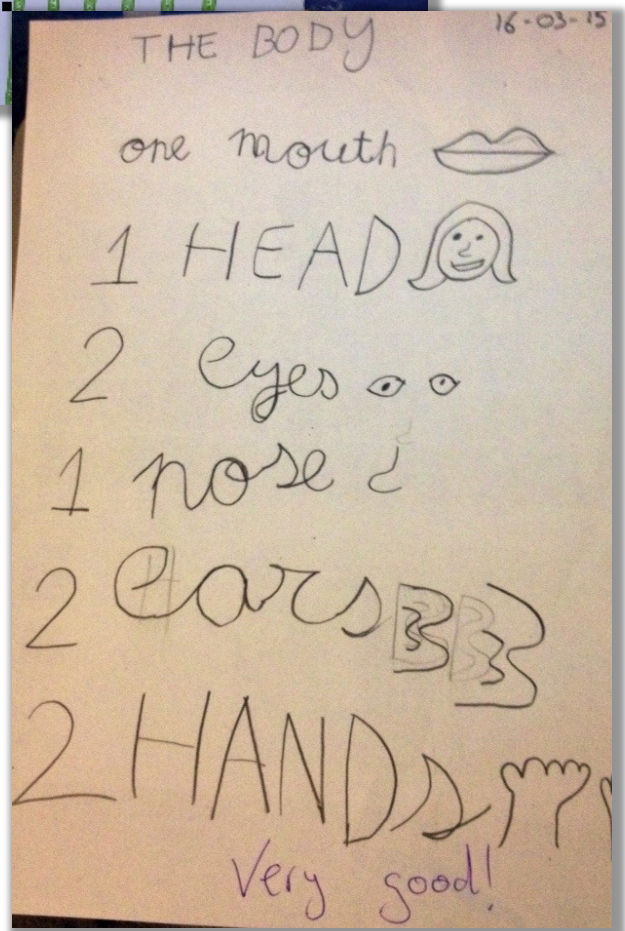 16-03-15
THE BODY
one mouth
1 HEAD
2 eyes
1 nose
2 ears
2 HANDs
Very good!